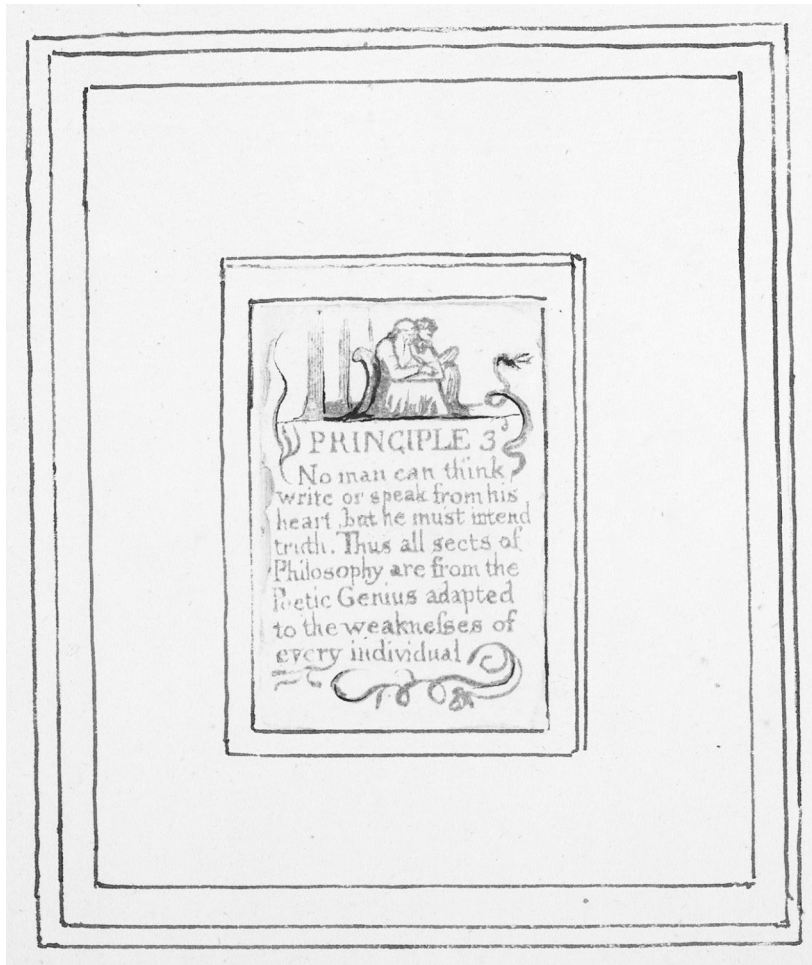 PRINCIPLE 3
No man can think
write or speak from his
heart, but he must intend
truth. Thus all sects of
Philosophy are from the
Poetic Genius adapted
to the weakneſses of
every individual